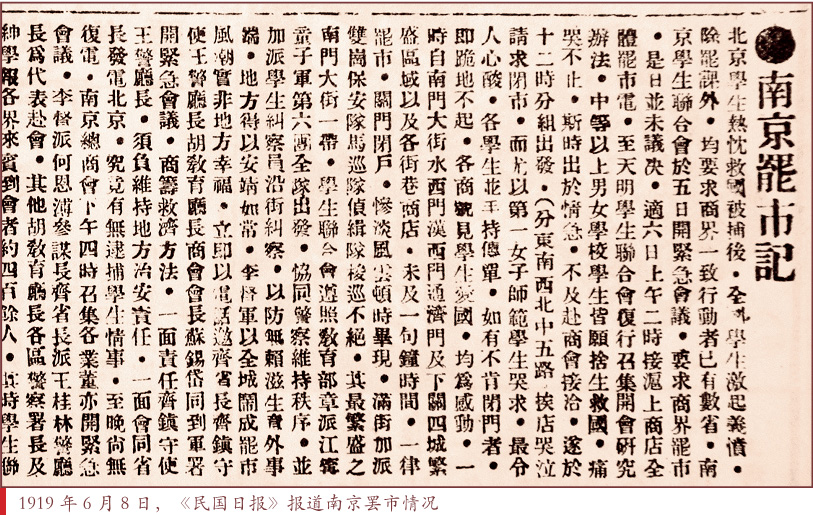 南京罷市記
北京學生熱忱救國被捕後。全體學生激起義憤。
除罷課外。均要求商界一致行動者已有數省。南
京學生聯合會於五日開緊急會議。要求商界罷市
。是日並未議决。適六日上午二時接滬上商店全
體罷市電。至天明學生聯合會復行召集開會研究
辦法。中等以上男女學校學生皆願捨生救國。痛
哭不止。斯時出於情急。不及赴商會接洽。遂於
十二時分組出發。(分東南西北中五路)挨店哭泣
請求閉市。而尤以第一女子師範學生哭求。最令
人心酸。各學生並手持傳單。如有不肯閉門者。
即跪地不起。各商號見學生愛國。均爲感動。一
時自南門大街水西門漢西門通濟門及下關四城繁
盛區域以及各街巷商店。未及一句鐘時間。一律
罷市。關門閉戶。慘淡風雲頓時畢現。滿街加派
雙崗保安隊馬巡隊偵緝隊梭巡不絕。其最繁盛之
南門大街一帶。學生聯合會遵照教育部章派江寗
童子軍第六團全隊出發。協同警察維持秩序。並
加派學生糾察員沿街糾察。以防無賴滋生意外事
端。地方得以安靖如常。李督軍以全城鬧成罷市
風潮實非地方幸福。立即以電話邀齊省長齊鎮守
使王警廳長胡教育廳長商會會長蘇錫岱同到軍署
開緊急會議。商籌救濟方法。一面責任齊鎮守使
王警廳長。須負維持地方治安責任。一面會同省
長發電北京。究竟有無逮捕學生情事。至晚尚無
復電。南京總商會下午四時召集各業董亦開緊急
會議。李督派何恩溥參謀長齊省長派王桂林警廳
長爲代表赴會。其他胡教育廳長各區警察署長及
紳學報各界來賓到會者約四百餘人。其時學生聯
1919 年 6 月 8 日，《民国日报》报道南京罢市情况